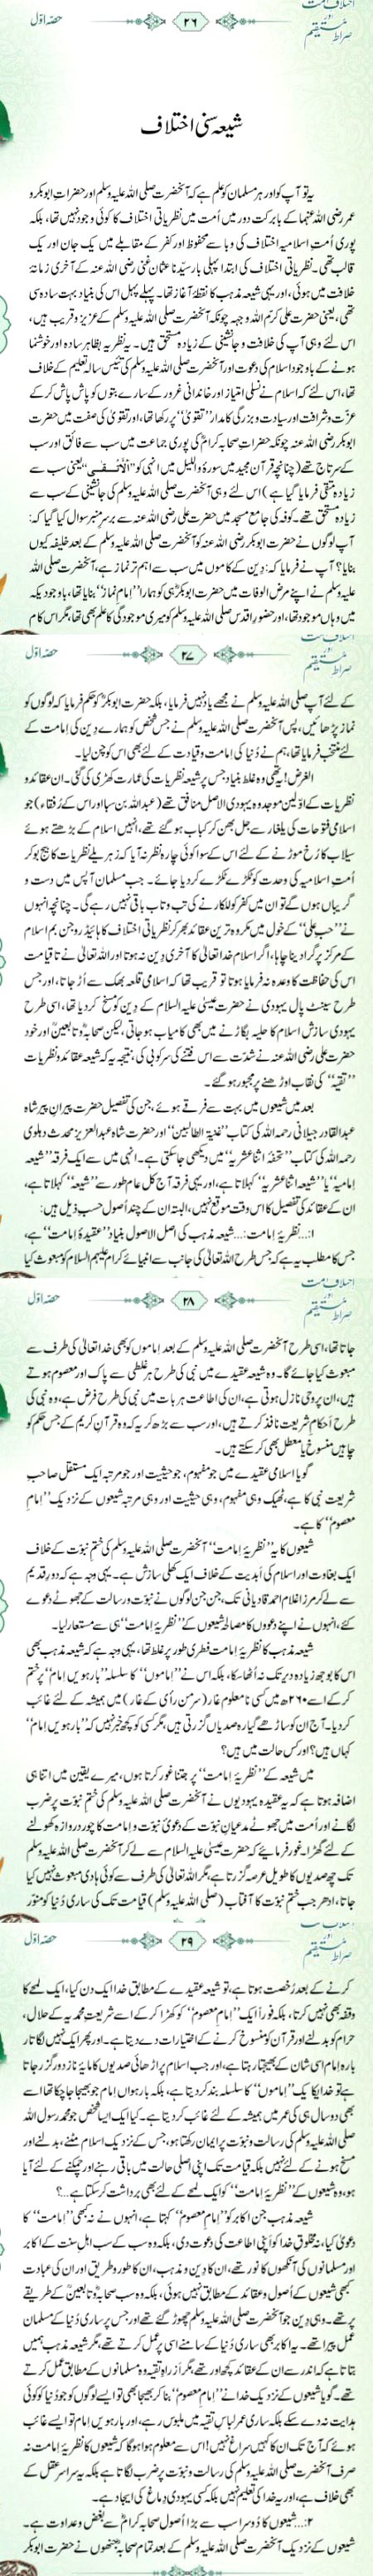 حصہ اوّل
۲۶
اختلافِ امت
اور
صراطِ مستقیم
شیعہ سنی اختلاف
یہ تو آپ کو اور ہر مسلمان کو علم ہے کہ آنحضرت صلی اللہ علیہ وسلم اور حضرات ابوبکر و
عمر رضی اللہ عنہما کے بابرکت دور میں اُمت میں نظریاتی اختلاف کا کوئی وجود نہیں تھا، بلکہ
پوری اُمتِ اسلامیہ اختلاف کی وبا سے محفوظ اور کفر کے مقابلے میں یک جان اور یک
قالب تھی۔ نظریاتی اختلاف کی ابتدا پہلی بار سیّدنا عثمان غنی رضی اللہ عنہ کے آخری زمانۂ
خلافت میں ہوئی، اور یہی شیعہ مذہب کا نقطۂ آغاز تھا۔ پہلے پہل اس کی بنیاد بہت سادہ سی
تھی، یعنی حضرت علی کرّم اللہ وجہہ چونکہ آنحضرت صلی اللہ علیہ وسلم کے عزیز و قریب ہیں،
اس لئے وہی آپ کی خلافت و جانشینی کے زیادہ مستحق ہیں۔ یہ نظریہ بظاہر سادہ اور خوشنما
ہونے کے باوجود اسلام کی دعوت اور آنحضرت صلی اللہ علیہ وسلم کی تئیس سالہ تعلیم کے خلاف
تھا، اس لئے کہ اسلام نے نسلی امتیاز اور خاندانی غرور کے سارے بتوں کو پاش پاش کرکے
عزّت و شرافت اور سیادت و بزرگی کا مدار ”تقویٰ“ پر رکھا تھا، اور تقویٰ کی صفت میں حضرت
ابوبکر رضی اللہ عنہ چونکہ حضراتِ صحابہ کرامؓ کی پوری جماعت میں سب سے فائق اور سب
کے سرتاج تھے (چنانچہ قرآن مجید میں سورۂ واللیل میں انہی کو ”الْأَتْقٰی“ یعنی سب سے
زیادہ متقی فرمایا گیا ہے) اس لئے وہی آنحضرت صلی اللہ علیہ وسلم کی جانشینی کے سب سے
زیادہ مستحق تھے۔ کوفہ کی جامع مسجد میں حضرت علی رضی اللہ عنہ سے برسرِ منبر سوال کیا گیا کہ:
آپ لوگوں نے حضرت ابوبکر رضی اللہ عنہ کو آنحضرت صلی اللہ علیہ وسلم کے بعد خلیفہ کیوں
بنایا؟ آپ نے فرمایا کہ: دِین کے کاموں میں سب سے اہم تر نماز ہے، آنحضرت صلی اللہ
علیہ وسلم نے اپنے مرض الوفات میں حضرت ابوبکرؓ ہی کو ہمارا ”اِمامِ نماز“ بنایا تھا، باوجودیکہ
میں وہاں موجود تھا، اور حضورِ اقدس صلی اللہ علیہ وسلم کو میری موجودگی کا علم بھی تھا، مگر اس کام
حصہ اوّل
۲۷
اور
صراطِ مستقیم
کے لئے آپ صلی اللہ علیہ وسلم نے مجھے یاد نہیں فرمایا، بلکہ حضرت ابوبکرؓ کو حکم فرمایا کہ لوگوں کو
نماز پڑھائیں، پس آنحضرت صلی اللہ علیہ وسلم نے جس شخص کو ہمارے دِین کی اِمامت کے
لئے منتخب فرمایا تھا، ہم نے دُنیا کی اِمامت و قیادت کے لئے بھی اس کو چن لیا۔
الغرض! یہ تھی وہ غلط بنیاد جس پر شیعہ نظریات کی عمارت کھڑی کی گئی۔ ان عقائد و
نظریات کے اوّلین موجد وہ یہودی الاصل منافق تھے (عبداللہ بن سبا اور اس کے رُفقاء) جو
اسلامی فتوحات کی یلغار سے جل بھن کر کباب ہوگئے تھے، انہیں اسلام کے بڑھتے ہوئے
سیلاب کا رُخ موڑنے کے لئے اس کے سوا کوئی چارہ نظر نہ آیا کہ زہریلے نظریات کا بیج بو کر
اُمتِ اسلامیہ کی وحدت کو ٹکڑے ٹکڑے کردیا جائے۔ جب مسلمان آپس میں دست و
گریباں ہوں گے تو ان میں کفر کو للکارنے کی تب و تاب باقی نہیں رہے گی۔ چنانچہ انہوں
نے ”حبِ علی“ کے خول میں مکروہ ترین عقائد بھر کر نظریاتی اختلاف کا ہائیڈروجن بم اسلام
کے مرکز پر گرا دینا چاہا، اگر اسلام خدا تعالیٰ کا آخری دِین نہ ہوتا اور اللہ تعالیٰ نے تا قیامت
اس کی حفاظت کا وعدہ نہ فرمایا ہوتا تو قریب تھا کہ اسلامی قلعہ بھک سے اُڑ جاتا، اور جس
طرح سینٹ پال یہودی نے حضرت عیسیٰ علیہ السلام کے دِین کو مسخ کردیا تھا، اسی طرح
یہودی سازش اسلام کا حلیہ بگاڑنے میں بھی کامیاب ہوجاتی، لیکن صحابہؓ و تابعینؒ اور خود
حضرت علی رضی اللہ عنہ نے شدّت سے اس فتنے کی سرکوبی کی، نتیجہ یہ کہ شیعہ عقائد و نظریات
”تقیہ“ کی نقاب اوڑھنے پر مجبور ہوگئے۔
بعد میں شیعوں میں بہت سے فرقے ہوئے، جن کی تفصیل حضرت پیرانِ پیر شاہ
عبدالقادر جیلانی رحمہ اللہ کی کتاب ”غنیۃ الطالبین“ اور حضرت شاہ عبدالعزیز محدث دہلوی
رحمہ اللہ کی کتاب ”تحفہ اثنا عشریہ“ میں دیکھی جاسکتی ہے۔ انہی میں سے ایک فرقہ ”شیعہ
اِمامیہ“ یا ”شیعہ اثنا عشریہ“ کہلاتا ہے، اور یہی فرقہ آج کل عام طور سے ”شیعہ“ کہلاتا ہے،
ان کے عقائد کی تفصیل کا اس وقت موقع نہیں، البتہ ان کے چند اُصول حسبِ ذیل ہیں:
۱:...نظریۂ اِمامت:... شیعہ مذہب کی اصل الاصول بنیاد ”عقیدۂ اِمامت“ ہے،
جس کا مطلب یہ ہے کہ جس طرح اللہ تعالیٰ کی جانب سے انبیائے کرام علیہم السلام کو مبعوث کیا
حصہ اوّل
۲۸
اختلافِ امت
اور
صراطِ مستقیم
جاتا تھا، اسی طرح آنحضرت صلی اللہ علیہ وسلم کے بعد اِماموں کو بھی خدا تعالیٰ کی طرف سے
مبعوث کیا جائے گا۔ وہ شیعہ عقیدے میں نبی کی طرح ہر غلطی سے پاک اور معصوم ہوتے
ہیں، ان پر وحی نازل ہوتی ہے، ان کی اطاعت ہر بات میں نبی کی طرح فرض ہے، وہ نبی کی
طرح اَحکامِ شریعت نافذ کرتے ہیں، اور سب سے بڑھ کر یہ کہ وہ قرآنِ کریم کے جس حکم کو
چاہیں منسوخ یا معطل بھی کرسکتے ہیں۔
گویا اسلامی عقیدے میں جو مفہوم، جو حیثیت اور جو مرتبہ ایک مستقل صاحبِ
شریعت نبی کا ہے، ٹھیک وہی مفہوم، وہی حیثیت اور وہی مرتبہ شیعوں کے نزدیک ”اِمامِ
معصوم“ کا ہے۔
شیعوں کا یہ ”نظریۂ اِمامت“ آنحضرت صلی اللہ علیہ وسلم کی ختمِ نبوّت کے خلاف
ایک بغاوت اور اسلام کی اَبدیت کے خلاف ایک کھلی سازش ہے۔ یہی وجہ ہے کہ دورِ قدیم
سے لے کر مرزا غلام احمد قادیانی تک، جن جن لوگوں نے نبوّت و رسالت کے جھوٹے دعوے
کئے، انہوں نے اپنے دعووں کا مصالحہ شیعوں کے ”نظریۂ اِمامت“ ہی سے مستعار لیا۔
شیعہ مذہب کا نظریۂ اِمامت فطری طور پر غلط تھا، یہی وجہ ہے کہ شیعہ مذہب بھی
اس کا بوجھ زیادہ دیر تک نہ اُٹھا سکا، بلکہ اس نے ”اِماموں“ کا سلسلہ ”بارہویں اِمام“ پر ختم
کرکے اسے ۲۶۰ھ میں کسی نامعلوم غار (سرّ من رأی کے غار) میں ہمیشہ کے لئے غائب
کردیا۔ آج ان کو ساڑھے گیارہ صدیاں گزرتی ہیں، مگر کسی کو کچھ خبر نہیں کہ ”بارہویں اِمام“
کہاں ہیں؟ اور کس حالت میں ہیں؟
میں شیعہ کے ”نظریۂ اِمامت“ پر جتنا غور کرتا ہوں، میرے یقین میں اتنا ہی
اضافہ ہوتا ہے کہ یہ عقیدہ یہودیوں نے آنحضرت صلی اللہ علیہ وسلم کی ختمِ نبوّت پر ضرب
لگانے اور اُمت میں جھوٹے مدعیانِ نبوّت کے دعویٔ نبوّت و اِمامت کا چور دروازہ کھولنے
کے لئے گھڑا۔ غور فرمایئے کہ حضرت عیسیٰ علیہ السلام سے لے کر آنحضرت صلی اللہ علیہ وسلم
تک چھ صدیوں کا طویل عرصہ گزرتا ہے، مگر اللہ تعالیٰ کی طرف سے کوئی ہادی مبعوث نہیں کیا
جاتا، ادھر جب ختمِ نبوّت کا آفتاب (صلی اللہ علیہ وسلم) قیامت تک کی ساری دُنیا کو منوّر
حصہ اوّل
۲۹
اور
صراطِ مستقیم
کرنے کے بعد رُخصت ہوتا ہے، تو شیعہ عقیدے کے مطابق خدا ایک دن کیا، ایک لمحے کا
وقفہ بھی نہیں کرتا، بلکہ فوراً ایک ”اِمامِ معصوم“ کو کھڑا کرکے اسے شریعتِ محمدیہ کے حلال،
حرام کو بدلنے اور قرآن کو منسوخ کرنے کے اختیارات دے دیتا ہے۔ اور پھر ایک نہیں لگاتار
بارہ اِمام اسی شان کے بھیجتا رہتا ہے، اور جب اسلام پر اَڑھائی صدیوں کا مایۂ ناز دور گزر جاتا
ہے تو خدا یکایک ”اِماموں“ کا سلسلہ بند کردیتا ہے، بلکہ بارہواں اِمام جو بھیجا جاچکا تھا اسے
بھی دو سال ہی کی عمر میں ہمیشہ کے لئے غائب کردیتا ہے۔ کیا ایک ایسا شخص جو محمد رسول اللہ
صلی اللہ علیہ وسلم کی رسالت و نبوّت پر ایمان رکھتا ہو، جس کے نزدیک اسلام مٹنے، بدلنے اور
مسخ ہونے کے لئے نہیں بلکہ قیامت تک اپنی اصلی حالت میں باقی رہنے اور چمکنے کے لئے آیا
ہو، وہ شیعوں کے ”نظریۂ اِمامت“ کو ایک لمحے کے لئے بھی برداشت کرسکتا ہے...؟
شیعہ مذہب جن اکابر کو ”اِمامِ معصوم“ کہتا ہے، انہوں نے نہ کبھی ”اِمامت“ کا
دعویٰ کیا، نہ مخلوقِ خدا کو اپنی اطاعت کی دعوت دی، بلکہ وہ سب کے سب اہلِ سنت کے اکابر
اور مسلمانوں کی آنکھوں کا نور تھے، ان کا دِین و مذہب، ان کا طور و طریق اور ان کی عبادت
کبھی شیعوں کے اُصول و عقائد کے مطابق نہیں ہوئی، بلکہ وہ سب صحابہؓ و تابعینؒ کے طریقے
پر تھے۔ وہی دِین جو آنحضرت صلی اللہ علیہ وسلم چھوڑ گئے تھے اور جس پر ساری دُنیا کے مسلمان
عمل پیرا تھے۔ یہ اکابر بھی ساری دُنیا کے سامنے اسی پر عمل کرتے تھے، مگر شیعہ مذہب ہمیں
بتاتا ہے کہ اندر سے ان کے عقائد کچھ اور تھے، مگر ازراہِ تقیہ وہ مسلمانوں کے مطابق عمل کرتے
تھے۔ گویا شیعوں کے نزدیک خدا نے ”اِمامِ معصوم“ بنا کر بھیجا بھی تو ایسے لوگوں کو جو دُنیا کو کوئی
ہدایت نہ دے سکے بلکہ ساری عمر لباسِ تقیہ میں ملبوس رہے، اور بارہویں اِمام تو ایسے غائب
ہوئے کہ آج تک ان کا کہیں سراغ نہیں! اس سے معلوم ہوا ہوگا کہ شیعوں کا نظریۂ اِمامت نہ
صرف آنحضرت صلی اللہ علیہ وسلم کی رسالت و نبوّت پر ضرب لگاتا ہے بلکہ یہ سراسر عقل کے
بھی خلاف ہے، اور یہ خدا کی تعلیم نہیں بلکہ کسی یہودی دِماغ کی ایجاد ہے۔
۲:... شیعوں کا دُوسرا سب سے بڑا اُصول صحابہ کرامؓ سے بغض و عداوت ہے۔
شیعوں کے نزدیک آنحضرت صلی اللہ علیہ وسلم کے بعد تمام صحابہؓ جنھوں نے حضرت ابوبکر